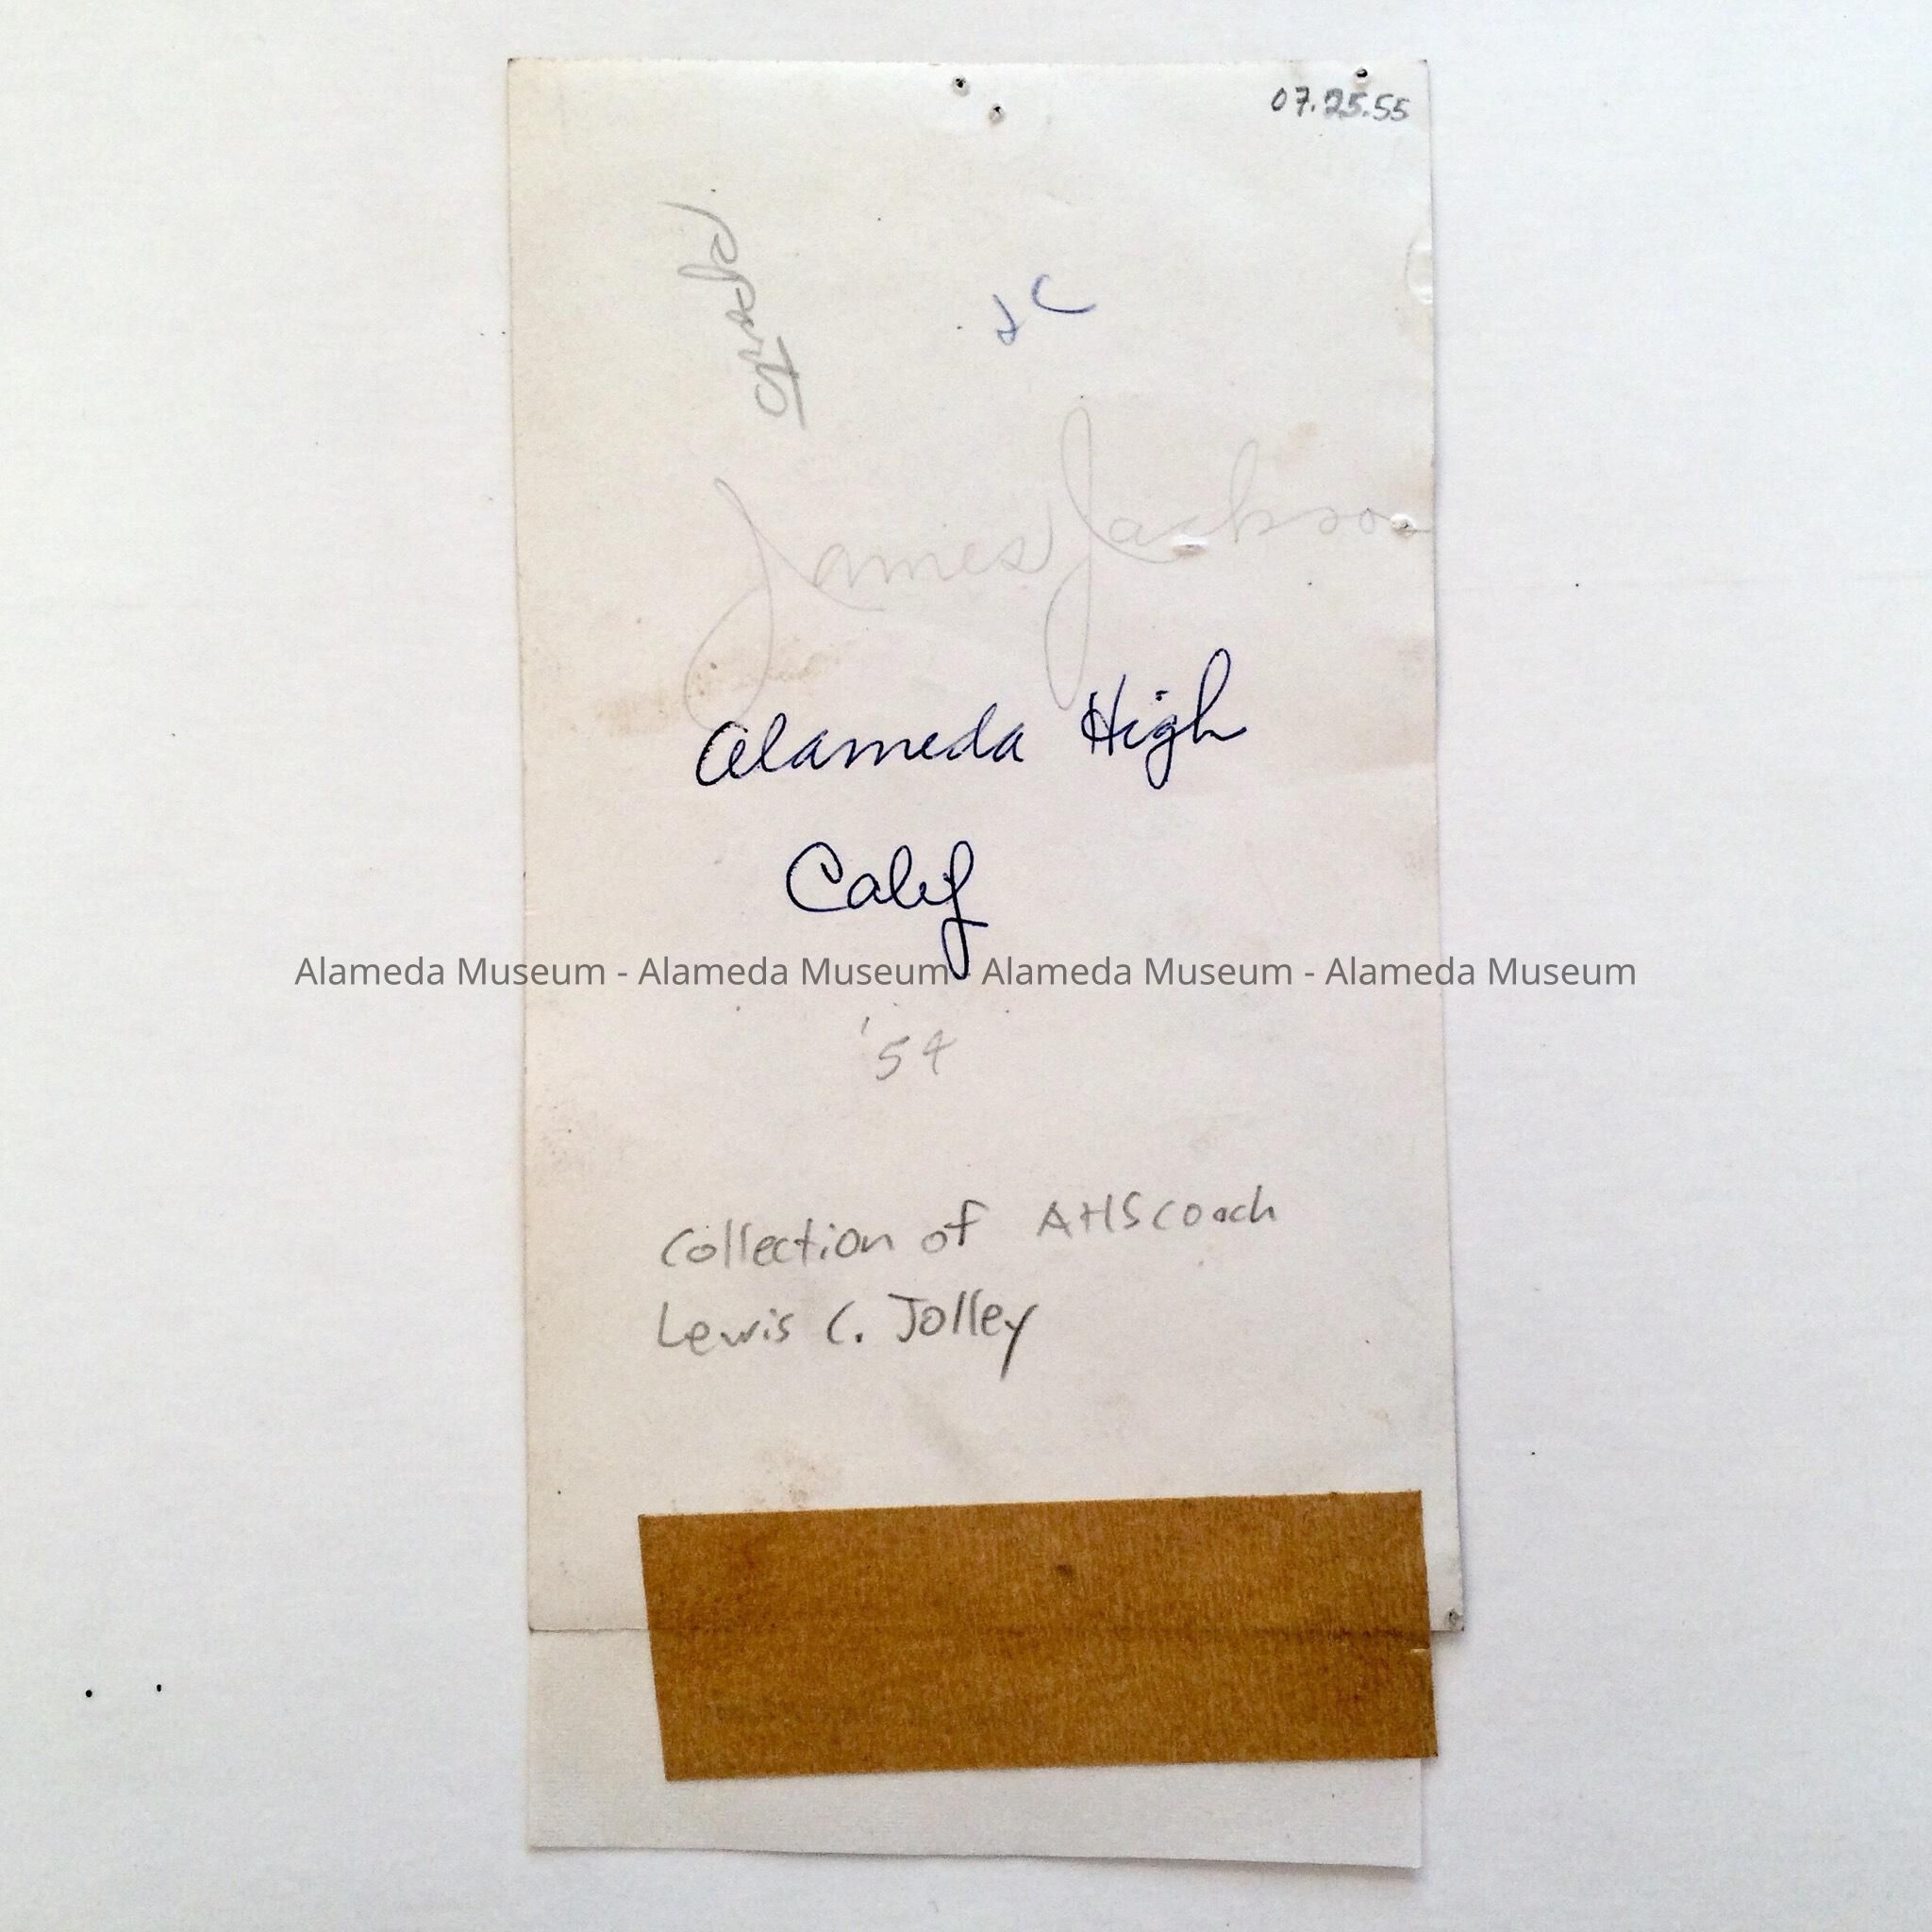 07.25.55
James Jackson
Alameda High
Calif
Alameda Museum - Alameda Museum - Alameda Museum - Alameda Museum
'54
Collection of AHS coach
Lewis C. Jolley